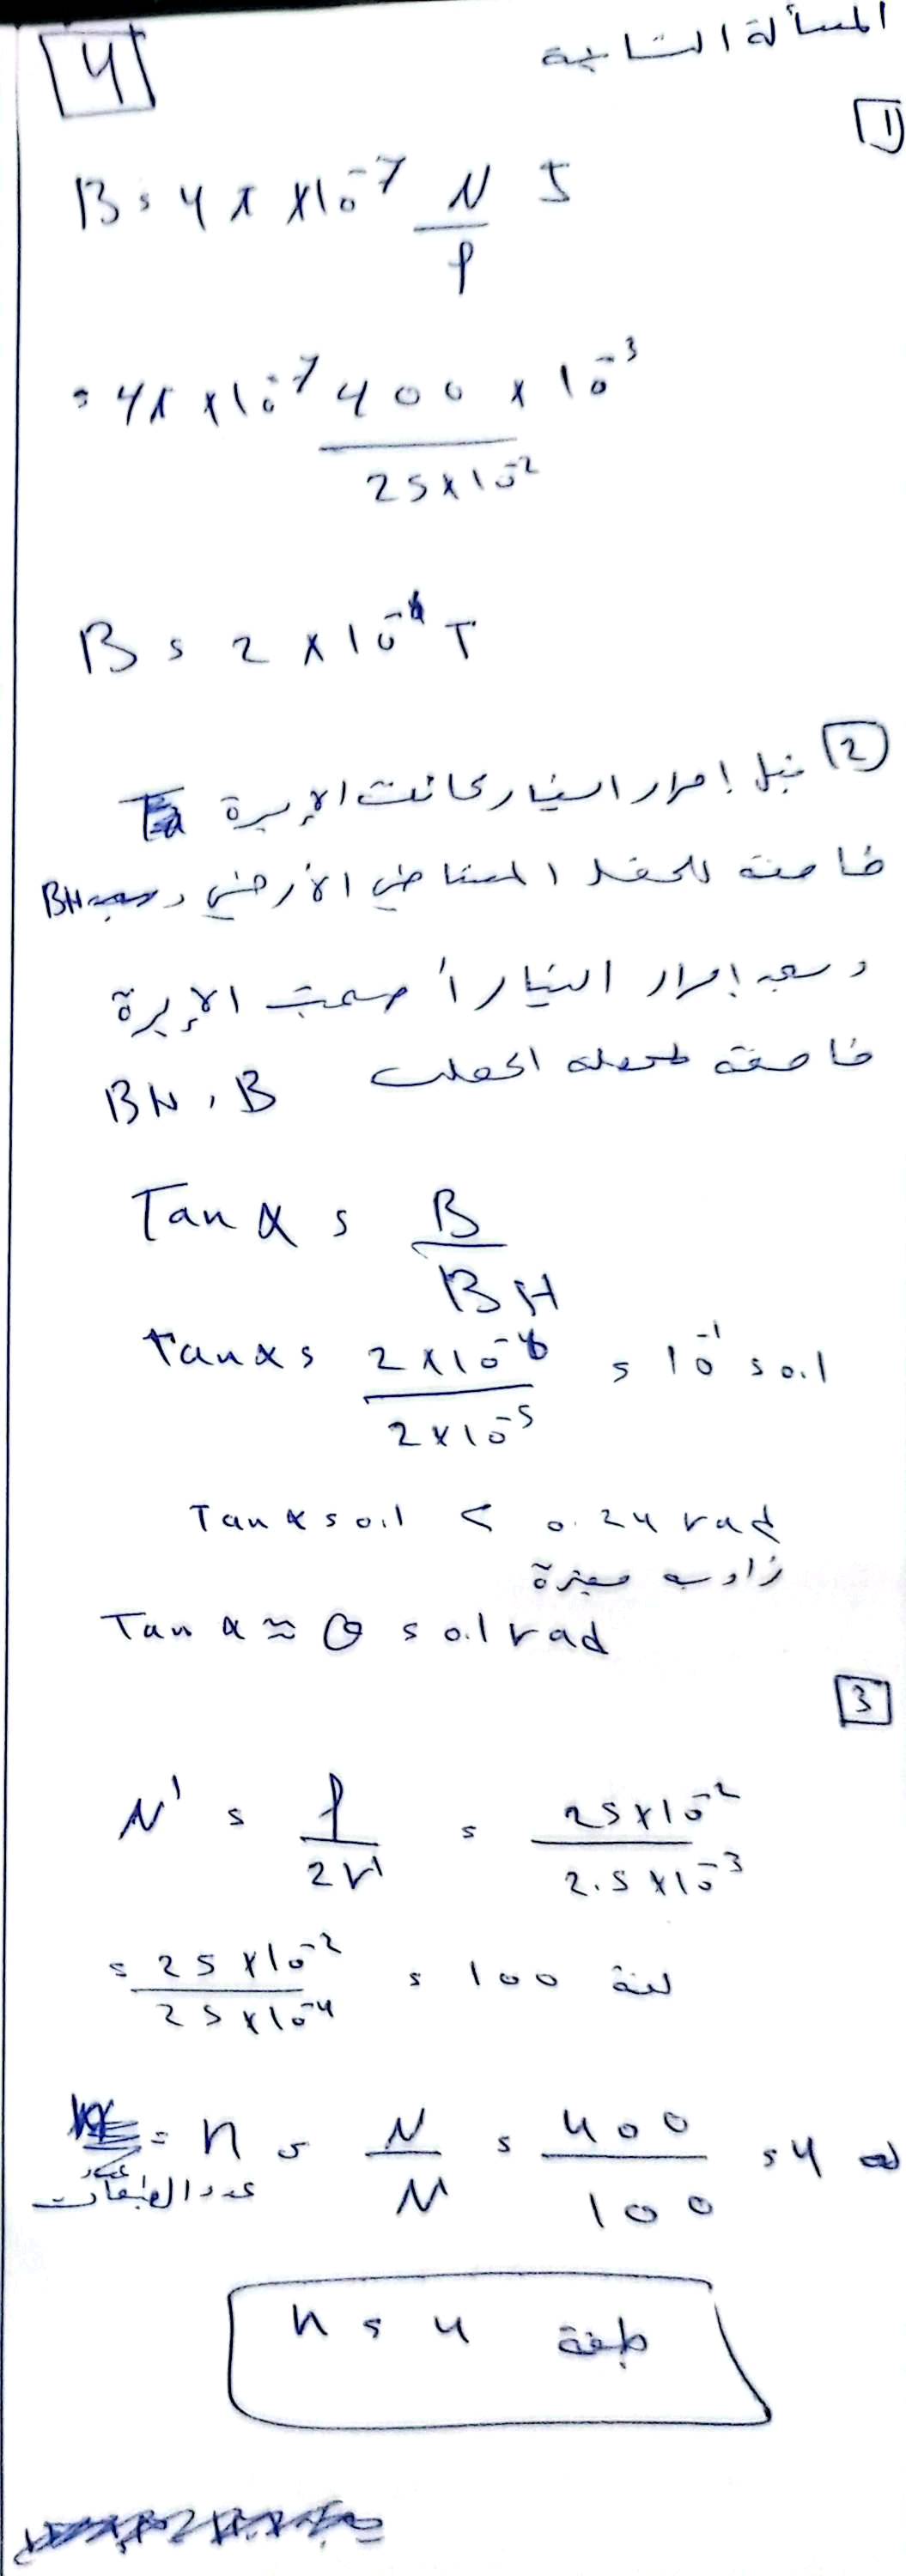 4
المسألة الثانية
1
B = 4π × 10⁻⁷ N/ℓ I
= 4π × 10⁻⁷ 400 × 10⁻³ / 25 × 10⁻²
B = 2 × 10⁻⁶ T
2 قبل إمرار التيار كانت الإبرة
خاضعة للحقل المغناطيسي الأرضي BH
وبعد إمرار التيار أصبحت الإبرة
خاضعة لمحصلة الحقلين BH , B
Tan α = B / BH
tan α = 2 × 10⁻⁶ / 2 × 10⁻⁵ = 10⁻¹ = 0.1
Tan α = 0.1 < 0.24 rad
زاوية صغيرة
Tan α ≈ θ = 0.1 rad
3
N' = ℓ / 2r' = 25 × 10⁻² / 2.5 × 10⁻³
= 25 × 10⁻² / 25 × 10⁻⁴ = 100 لفة
= n = N / N = 400 / 100 = 4
عدد الطبقات
n = 4 طبقة